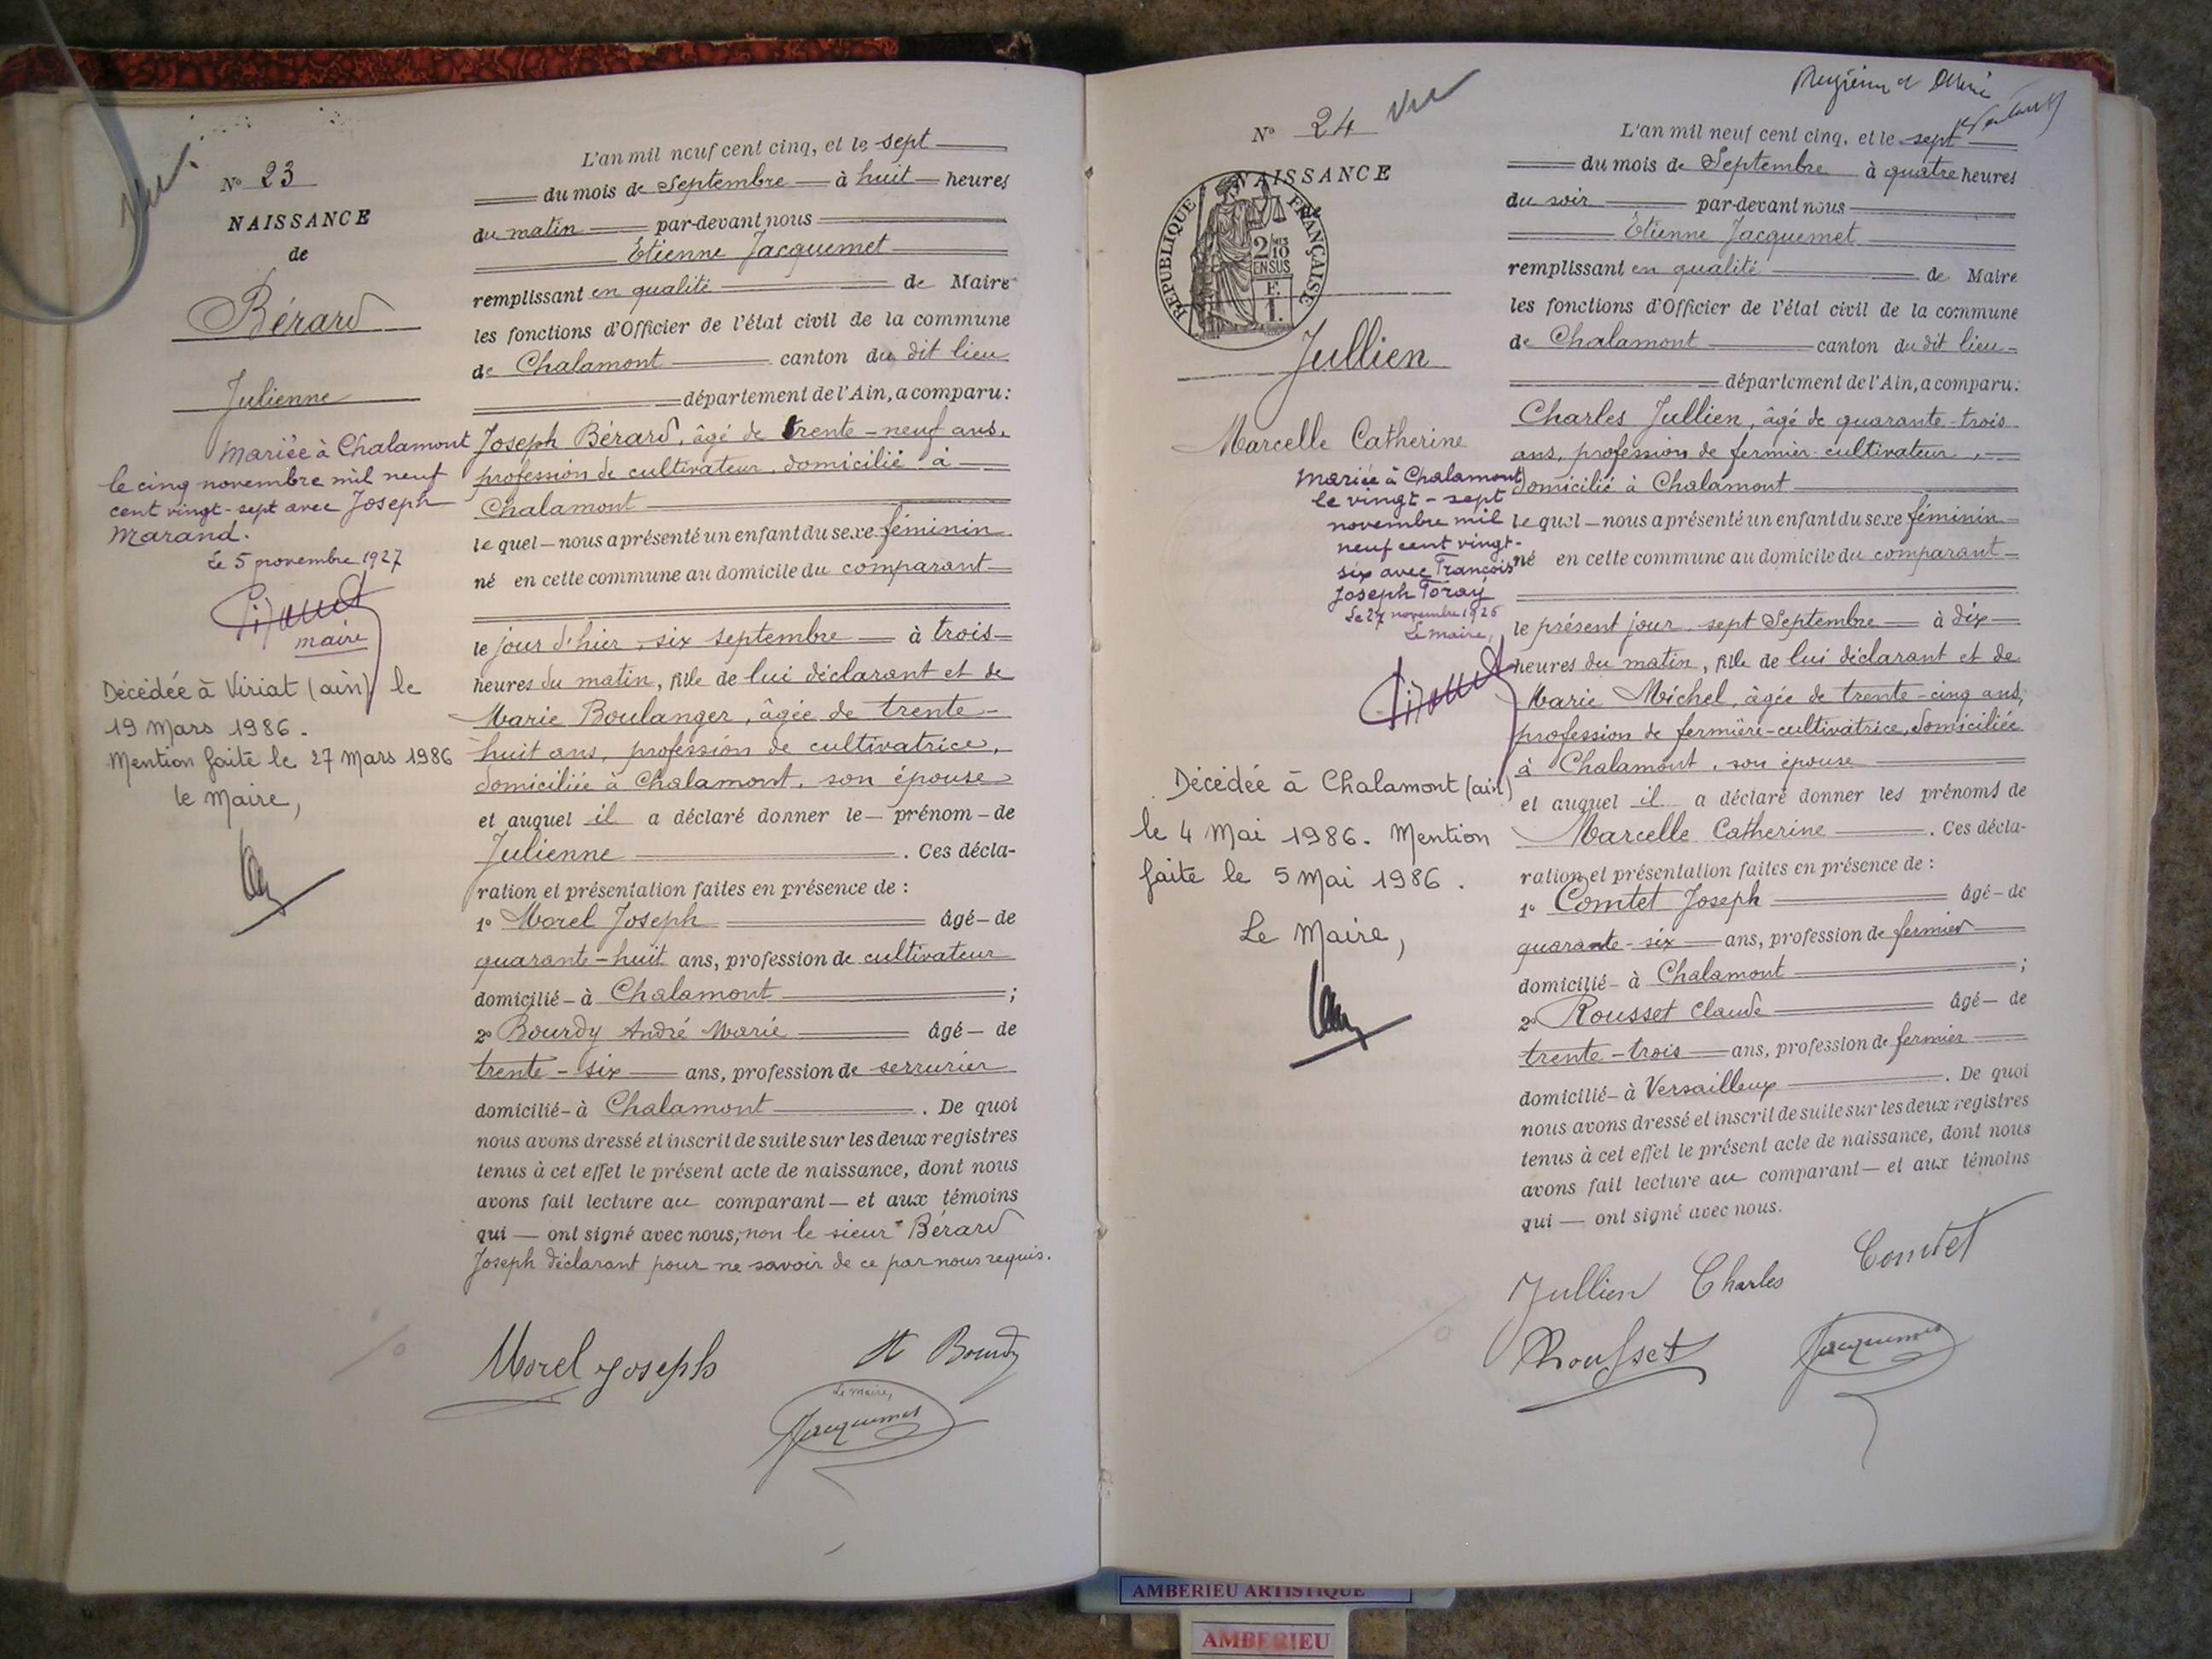 vu
N° 23
NAISSANCE
de
Bérard
Julienne
Mariée à Chalamont
le cinq novembre mil neuf
cent vingt-sept avec Joseph
Marand.
Le 5 novembre 1927
maire
Décédée à Viriat (ain) le
19 Mars 1986.
Mention faite le 27 Mars 1986
le Maire,
L'an mil neuf cent cinq, et le sept
du mois de Septembre à huit heures
du matin par-devant nous
Etienne Jacquemet
remplissant en qualité de Maire
les fonctions d'Officier de l'état civil de la commune
de Chalamont canton du dit lieu
département de l'Ain, a comparu:
Joseph Bérard, âgé de trente-neuf ans,
profession de cultivateur, domicilié à
Chalamont
le quel nous a présenté un enfant du sexe féminin
né en cette commune au domicile du comparant
le jour d'hier, six septembre à trois
heures du matin, fille de lui déclarant et de
Marie Boulanger, âgée de trente-
huit ans, profession de cultivatrice,
domiciliée à Chalamont, son épouse
et auquel il a déclaré donner le prénom de
Julienne . Ces décla-
ration et présentation faites en présence de :
1° Morel Joseph âgé de
quarante-huit ans, profession de cultivateur
domicilié à Chalamont ;
2° Bourdy André Marie âgé de
trente-six ans, profession de serrurier
domicilié à Chalamont . De quoi
nous avons dressé et inscrit de suite sur les deux registres
tenus à cet effet le présent acte de naissance, dont nous
avons fait lecture au comparant et aux témoins
qui ont signé avec nous, non le sieur Bérard
Joseph déclarant pour ne savoir de ce par nous requis.
Morel Joseph
At Bourdy
Le maire,
Jacquemet
N° 24 Vu
NAISSANCE
REPUBLIQUE FRANÇAISE
2/10
EN SUS
F.
1.
Jullien
Marcelle Catherine
Mariée à Chalamont
le vingt-sept
novembre mil
neuf cent vingt-
six avec François
Joseph Toray
Le 27 novembre 1926
Le maire,
Décédée à Chalamont (ain)
le 4 Mai 1986. Mention
faite le 5 Mai 1986.
Le Maire,
L'an mil neuf cent cinq, et le sept
du mois de Septembre à quatre heures
du soir par-devant nous
Etienne Jacquemet
remplissant en qualité de Maire
les fonctions d'Officier de l'état civil de la commune
de Chalamont canton du dit lieu
département de l'Ain, a comparu:
Charles Jullien, âgé de quarante-trois
ans, profession de fermier-cultivateur,
domicilié à Chalamont
le quel nous a présenté un enfant du sexe féminin
né en cette commune au domicile du comparant
le présent jour, sept Septembre à dix
heures du matin, fille de lui déclarant et de
Marie Michel, âgée de trente-cinq ans,
profession de fermière-cultivatrice, domiciliée
à Chalamont, son épouse
et auquel il a déclaré donner les prénoms de
Marcelle Catherine . Ces décla-
ration et présentation faites en présence de :
1° Comtet Joseph âgé de
quarante-six ans, profession de fermier
domicilié à Chalamont ;
2° Rousset Claude âgé de
trente-trois ans, profession de fermier
domicilié à Versailleux . De quoi
nous avons dressé et inscrit de suite sur les deux registres
tenus à cet effet le présent acte de naissance, dont nous
avons fait lecture au comparant et aux témoins
qui ont signé avec nous.
Jullien Charles
Comtet
Rousset
Jacquemet
AMBERIEU ARTISTIQUE
AMBERIEU